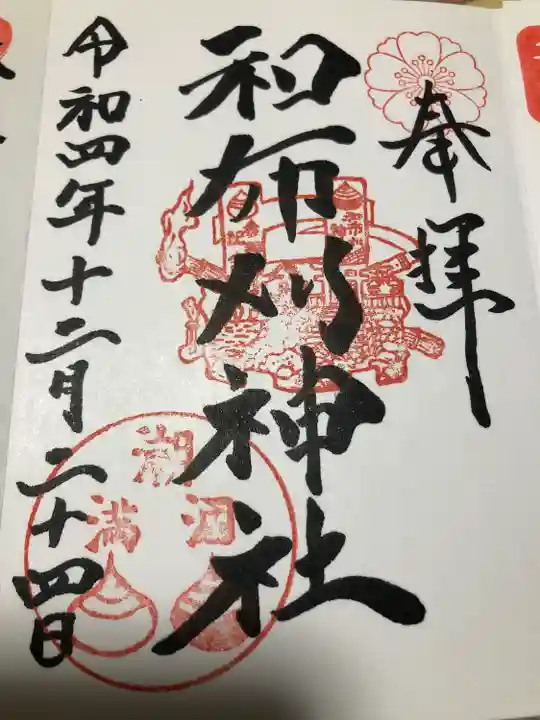 奉拝
和布刈神社
令和四年十二月二十四日
潮
満 涸